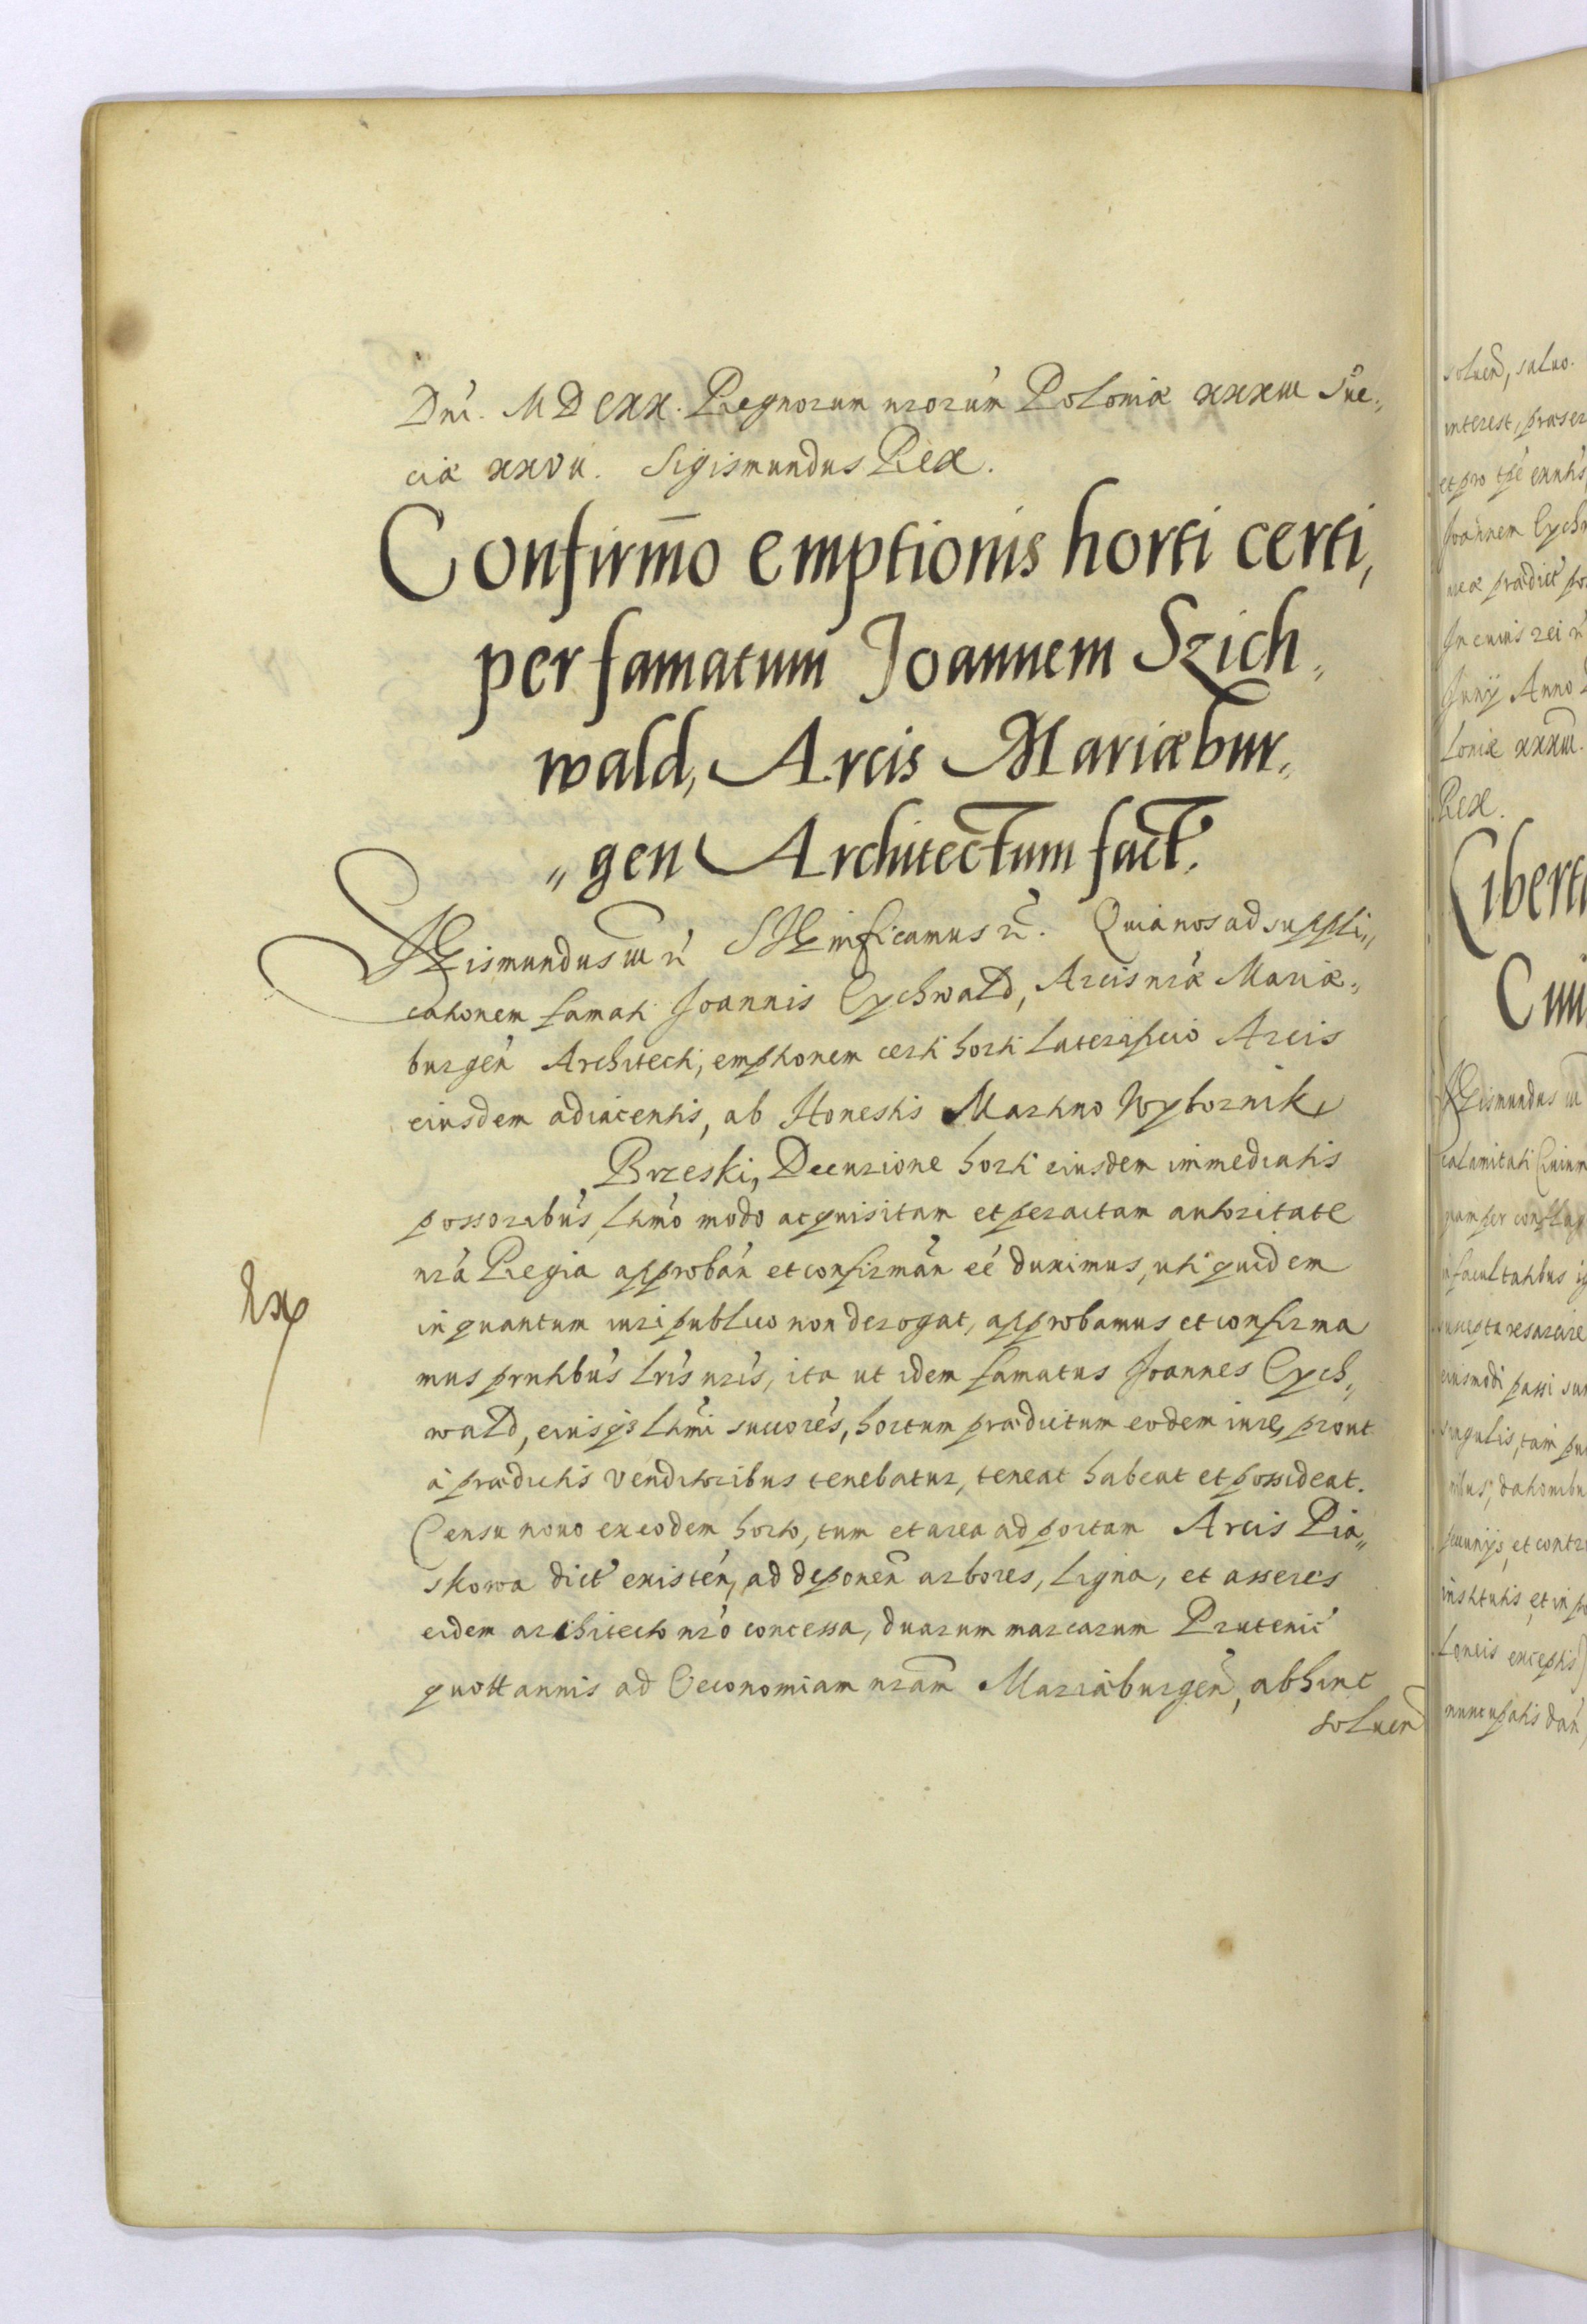 Dni. MDCXX. Regnorum nrorum Poloniæ XXXIII Sue„
ciæ XXVII. Sigismundus Rex.
Confirmo emptionis horti certi,
per famatum Joannem Szich„
wald, Arcis Mariæbur„
„gen Architectum fact.
Sigismundus III etc Significamus etc. Quia nos ad suppli„
cationem famati Joannis Eychwald, Arcis nræ Mariæ„
burgen Architecti, emptionem certi horti laterificio Arcis
eiusdem adiacentis, ab Honestis Martino Wybornik,
Brzeski, Decurione horti eiusdem immediatis
possoribus, ltimo modo acquisitam et peractam autoritate
nra Regia approban et confirman eé duximus, uti quidem
in quantum iuri publico non derogat, approbamus et confirma
mus prntibus lris nris, ita ut idem famatus Joannes Eych„
wald, eiusq; ltimi succores, hortum prædictum eodem iure, prout
à prædictis venditoribus tenebatur, teneat habeat et possideat.
Censu novo ex eodem horto, tum et area ad portam Arcis Pia„
skowa dict existen, ad deponen arbores, ligna, et asseres
eidem architecto nro concessa, duarum marcarum Prutenic
quottannis ad Oeconomiam nram Mariæburgen, abhinc
soluen
Ex
soluen, saluo.
interest, præser
et pro tpe exntis
Joannem Eychw
neæ prædict po
In cuius rei
Junij Anno
loniæ XXXIII.
Rex.
Liberta
Ciui
Sigismundus III
calamitati Ciuium
nam per confla
facultatibus ig
suscepta resarcire
eiusmodi passi sun
singulis, tam pu
nibus, dationibu
pecunijs, et contr
institutis, et in p
loneis exceptis)
nuncupatis dan,